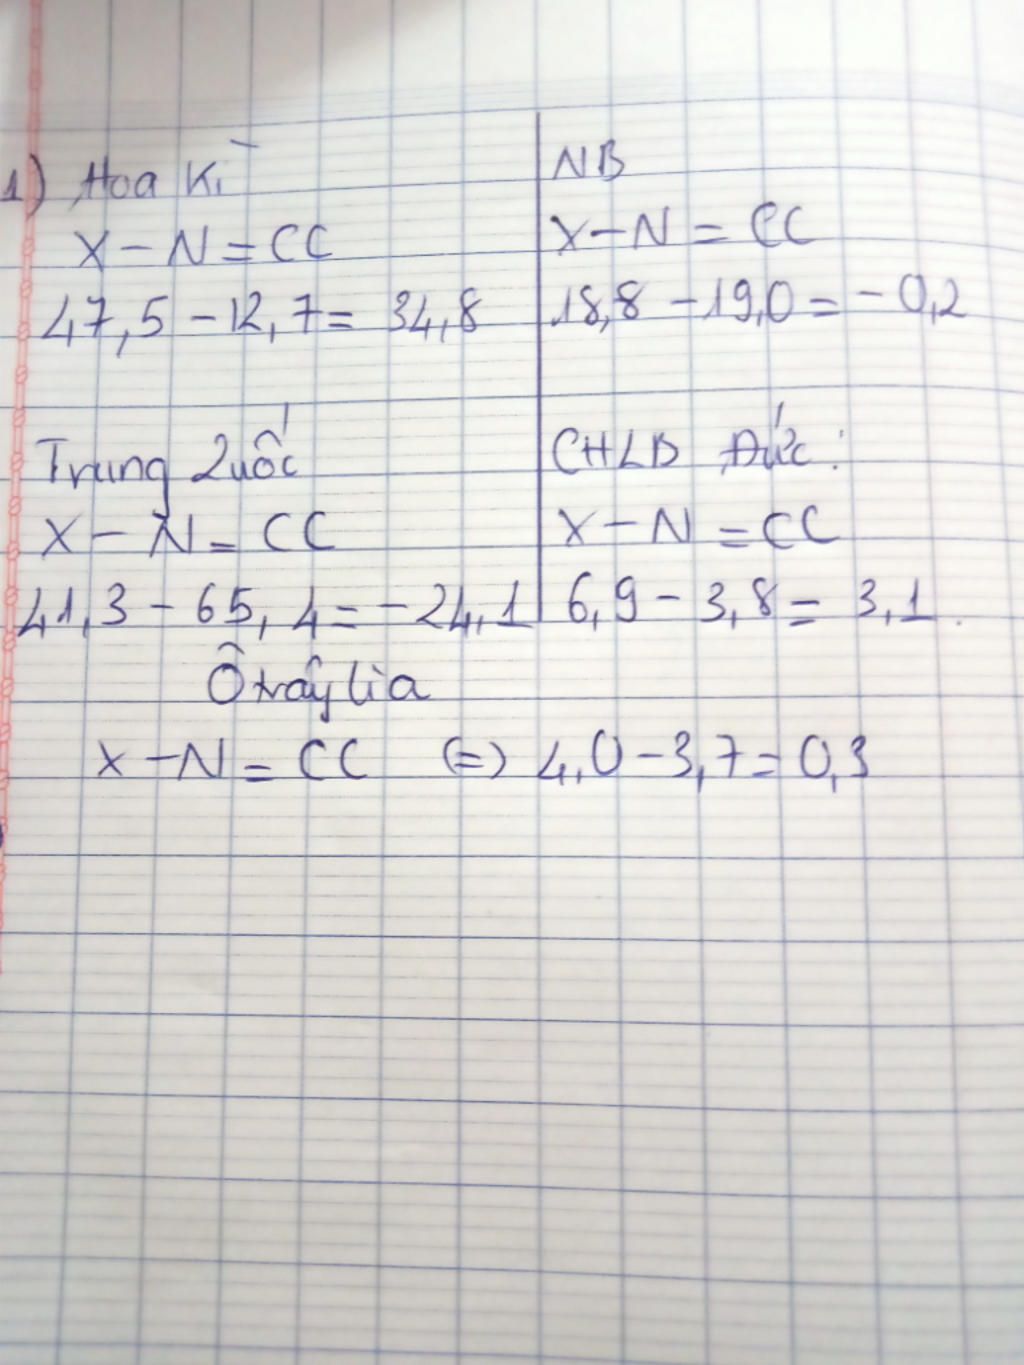 1) Hoa Kì
X - N = CC
47,5 - 12,7 = 34,8
NB
X - N = CC
18,8 - 19,0 = - 0,2
Trung Quốc
X - N = CC
41,3 - 65,4 = - 24,1
CHLB Đức:
X - N = CC
6,9 - 3,8 = 3,1
Ôxtrâylia
X - N = CC (=) 4,0 - 3,7 = 0,3